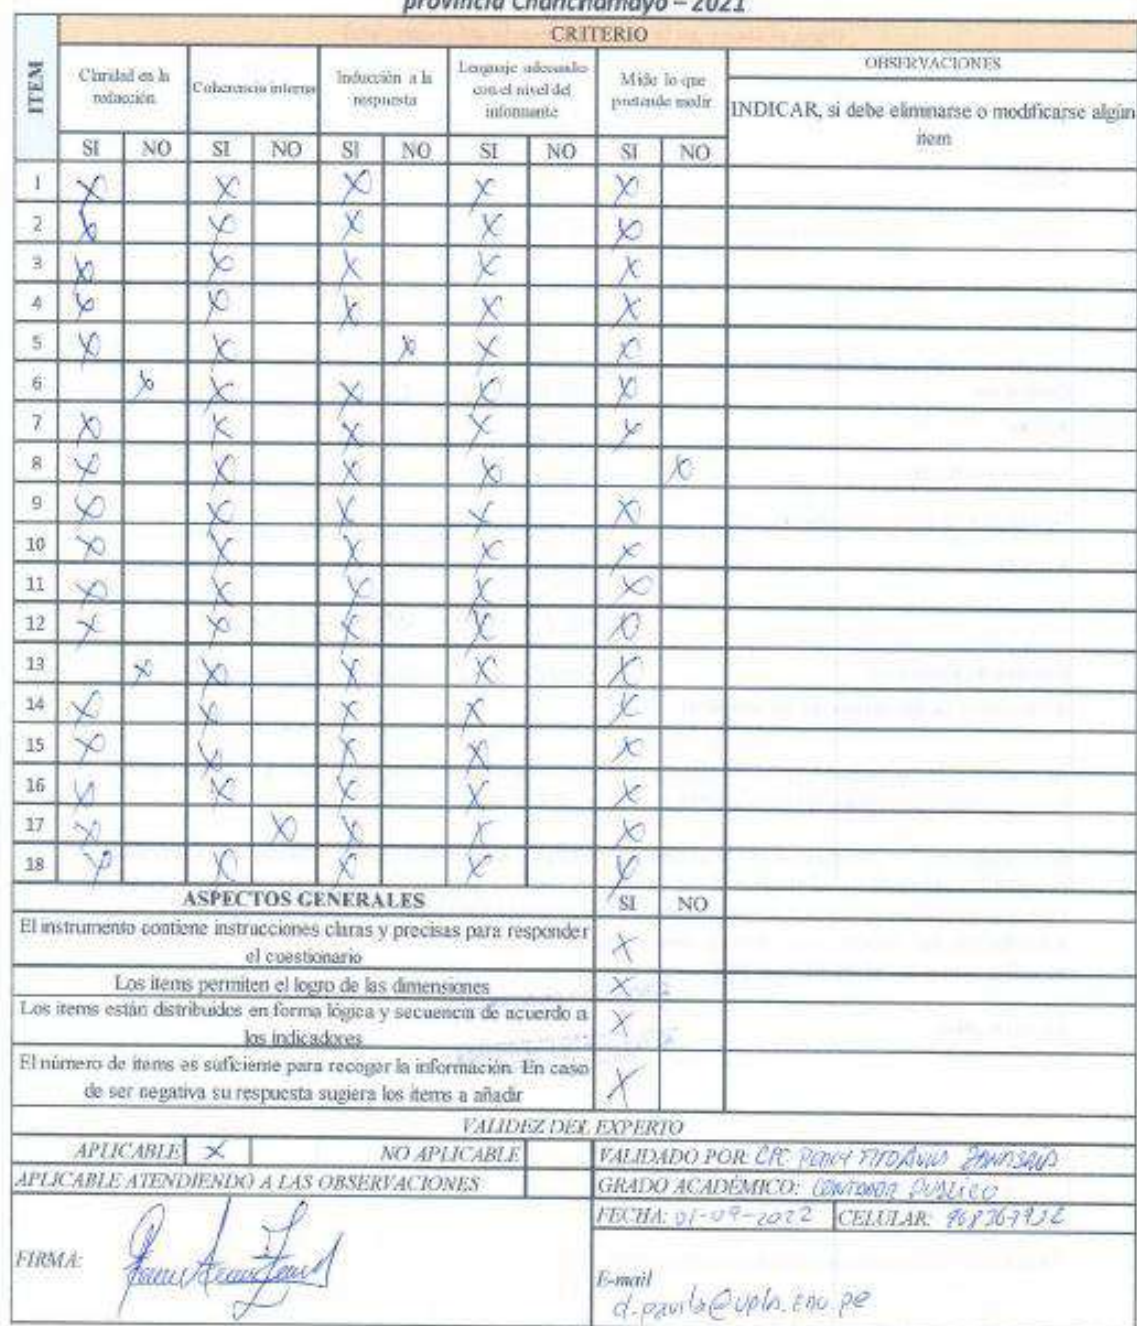 provincia Chanchamayo – 2021
CRITERIO
ITEM
Claridad en la redacción
Coherencia interna
Inducción a la respuesta
Lenguaje adecuado con el nivel del informante
Mide lo que pretende medir
OBSERVACIONES
INDICAR, si debe eliminarse o modificarse algún item
SI NO SI NO SI NO SI NO SI NO
1 X X X X X
2 X X X X X
3 X X X X X
4 X X X X X
5 X X X X X
6 X X X X X
7 X X X X X
8 X X X X X
9 X X X X X
10 X X X X X
11 X X X X X
12 X X X X X
13 X X X X X
14 X X X X X
15 X X X X X
16 X X X X X
17 X X X X X
18 X X X X X
ASPECTOS GENERALES SI NO
El instrumento contiene instrucciones claras y precisas para responder
el cuestionario X
Los items permiten el logro de las dimensiones X
Los items están distribuidos en forma lógica y secuencia de acuerdo a
los indicadores X
El número de items es suficiente para recoger la información. En caso
de ser negativa su respuesta sugiera los items a añadir X
VALIDEZ DEL EXPERTO
APLICABLE X NO APLICABLE VALIDADO POR: CPC
APLICABLE ATENDIENDO A LAS OBSERVACIONES GRADO ACADÉMICO: CONTADOR PUBLICO
FECHA: 01-09-2022 CELULAR:
FIRMA:
E-mail
d.pavila@upla.edu.pe